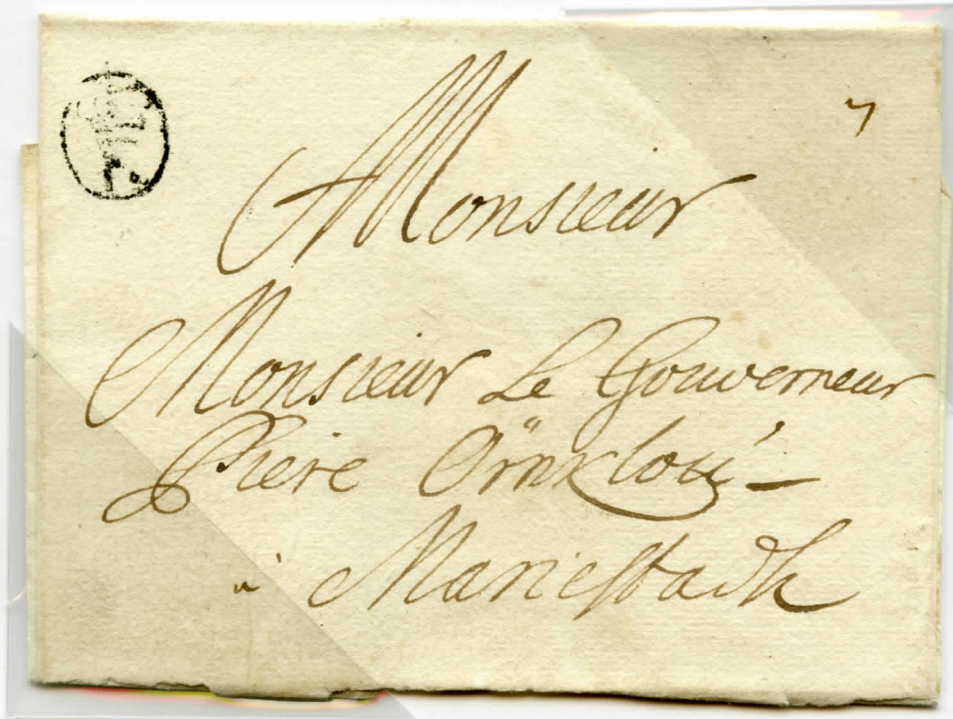 Monsieur
Monsieur Le Gouverneur
Piere Örnklou
à Mariestadh